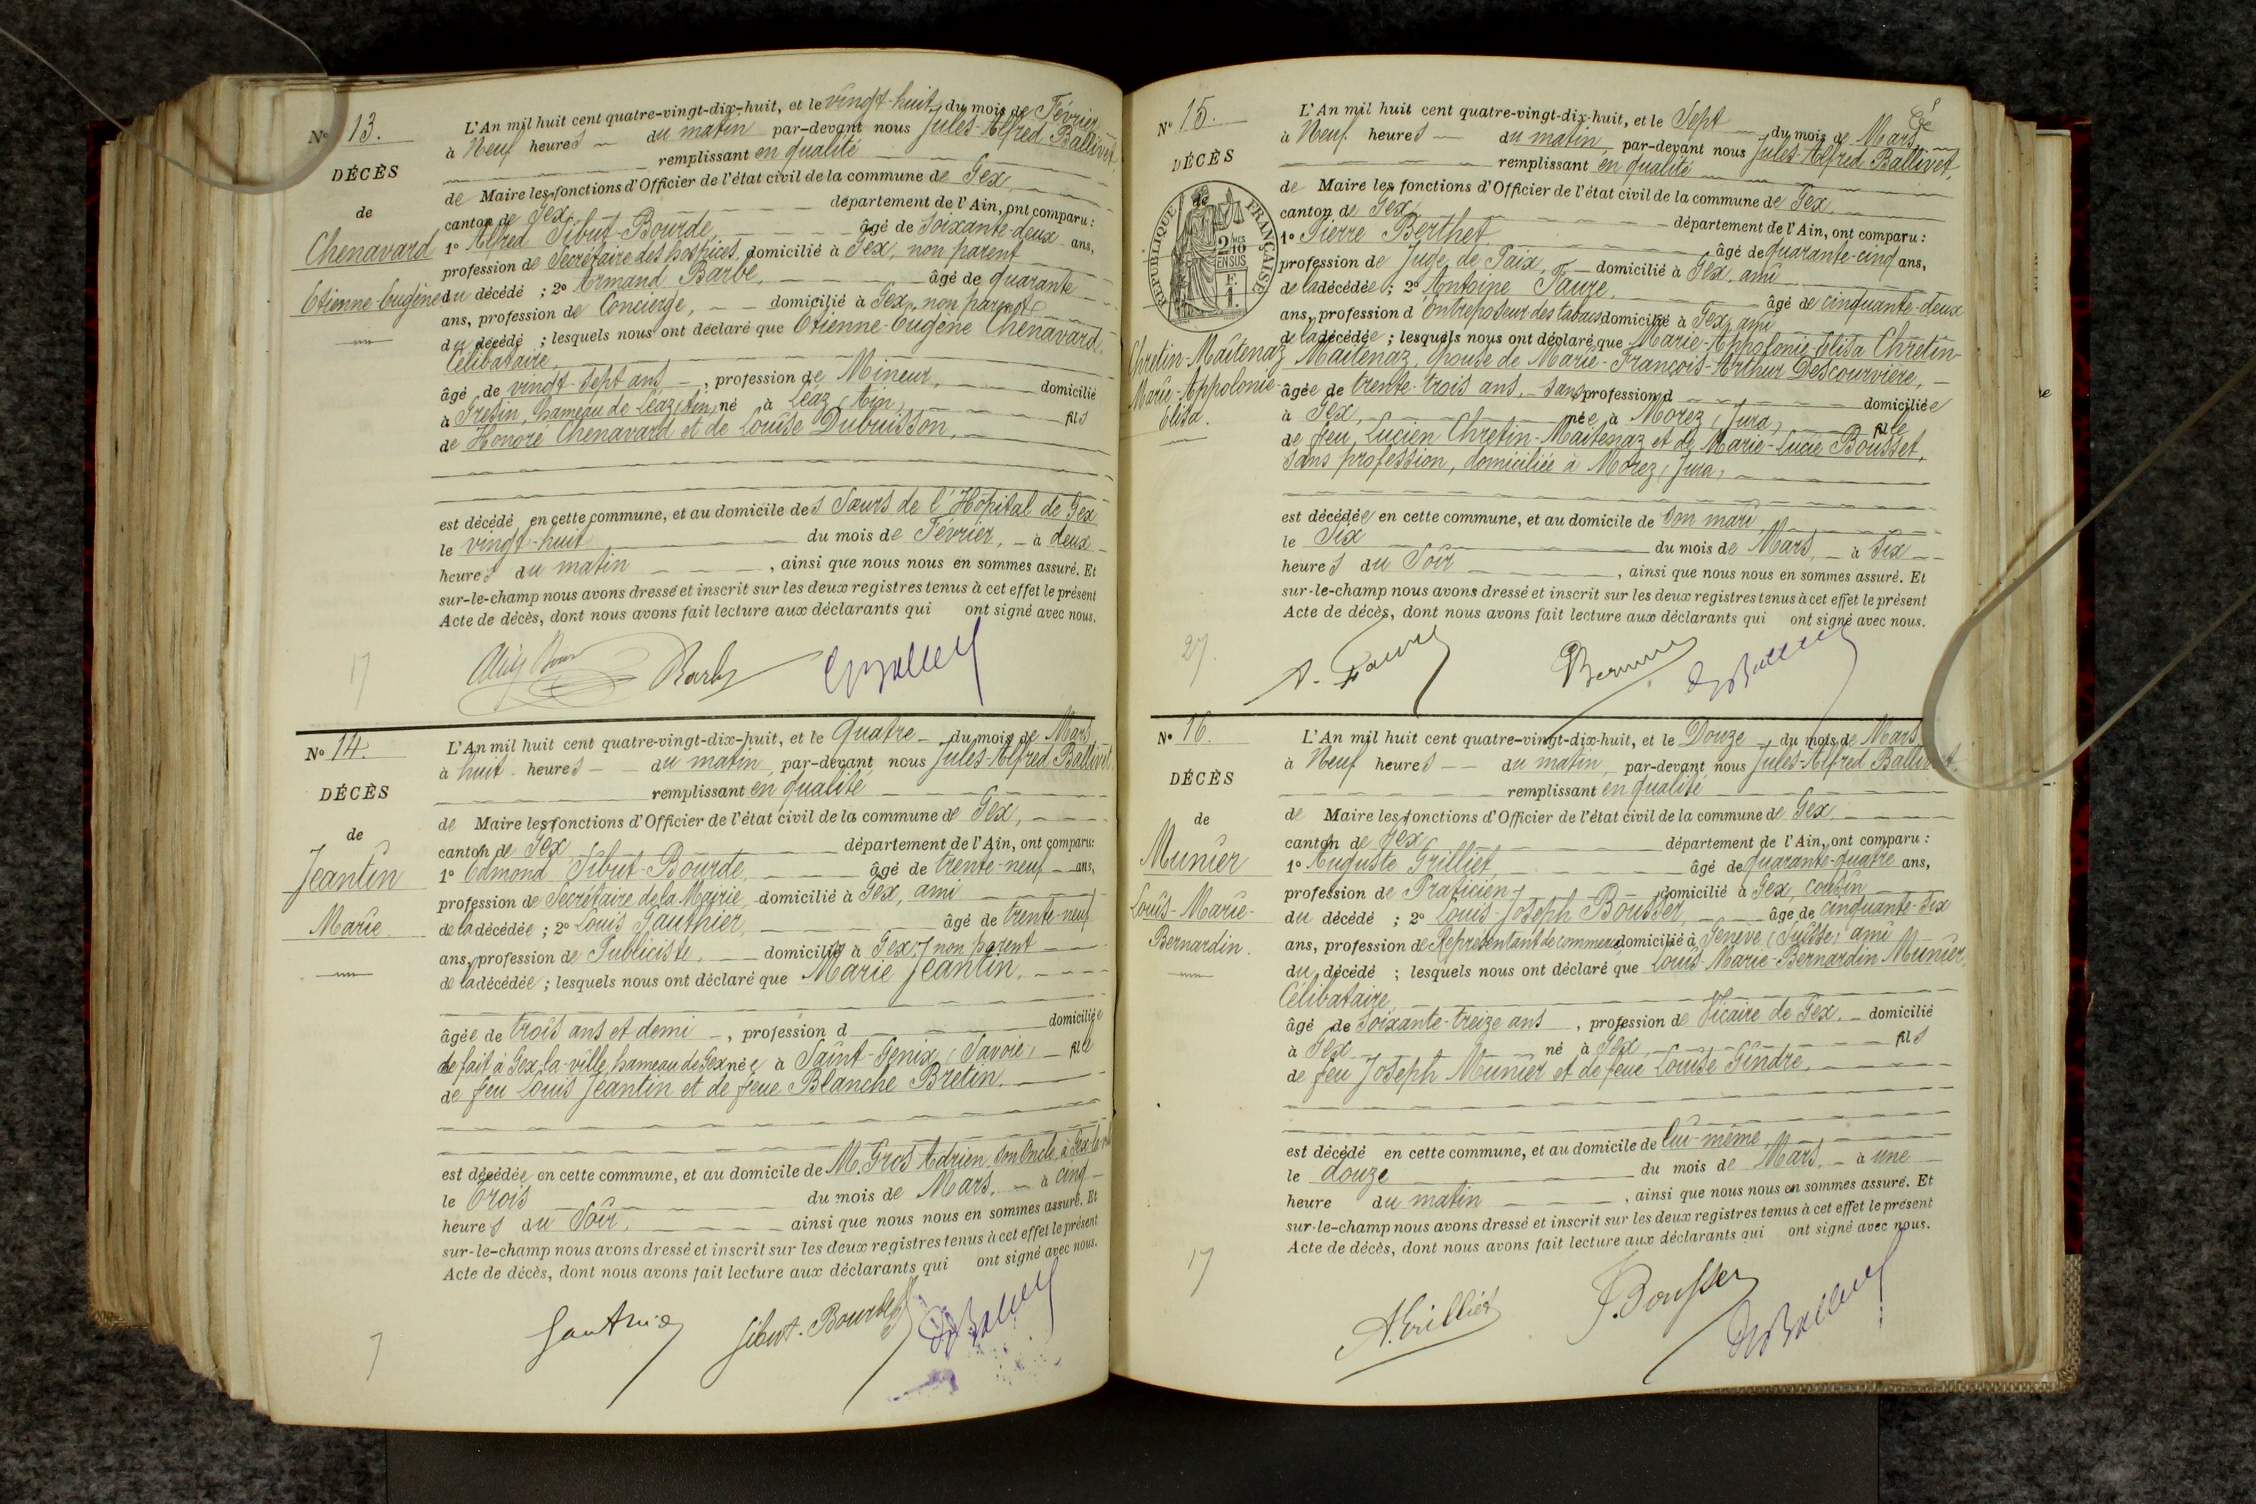 N° 13.
DÉCÈS
de
Chenavard
Etienne-Eugène
L'An mil huit cent quatre-vingt-dix-huit, et le vingt-huit du mois de Février
à Neuf heures du matin par-devant nous Jules-Alfred Ballivet,
remplissant en qualité
de Maire les fonctions d'Officier de l'état civil de la commune de Gex,
canton de Gex, département de l'Ain, ont comparu :
1° Alfred Sibut-Bourde, âgé de soixante-deux ans,
profession de Secrétaire des hospices, domicilié à Gex, non parent
du décédé ; 2° Armand Barbe, âgé de quarante
ans, profession de Concierge, domicilié à Gex, non parent
du décédé ; lesquels nous ont déclaré que Etienne-Eugène Chenavard,
Célibataire,
âgé de vingt-sept ans, profession de Mineur, domicilié
à Gresin, hameau de Léaz (Ain) né à Léaz (Ain), fils
de Honoré Chenavard et de Louise Dubuisson,
est décédé en cette commune, et au domicile des Sœurs de l'Hôpital de Gex
le vingt-huit du mois de Février, à deux
heures du matin, ainsi que nous nous en sommes assuré. Et
sur-le-champ nous avons dressé et inscrit sur les deux registres tenus à cet effet le présent
Acte de décès, dont nous avons fait lecture aux déclarants qui ont signé avec nous.
17
Barbe
N° 14.
DÉCÈS
de
Jeantin
Marie
L'An mil huit cent quatre-vingt-dix-huit, et le quatre du mois de Mars,
à huit heures du matin, par-devant nous Jules-Alfred Ballivet,
remplissant en qualité
de Maire les fonctions d'Officier de l'état civil de la commune de Gex,
canton de Gex département de l'Ain, ont comparu:
1° Edmond Sibut-Bourde, âgé de trente-neuf ans,
profession de Secrétaire de la Mairie, domicilié à Gex, ami
de la décédée ; 2° Louis Gauthier, âgé de trente-neuf
ans, profession de Publiciste, domicilié à Gex, non parent
de la décédée ; lesquels nous ont déclaré que Marie Jeantin,
âgée de trois ans et demi, profession d domiciliée
de fait à Gex-la-ville, hameau de Gex née à Saint-Genix (Savoie) fille
de feu Louis Jeantin et de feue Blanche Bretin,
est décédée en cette commune, et au domicile de M. Gros Adrien, son oncle, à Gex-la-ville
le trois du mois de Mars, à cinq
heures du Soir, ainsi que nous nous en sommes assuré. Et
sur-le-champ nous avons dressé et inscrit sur les deux registres tenus à cet effet le présent
Acte de décès, dont nous avons fait lecture aux déclarants qui ont signé avec nous.
Gauthier Sibut-Bourde
7
N° 15.
DÉCÈS
RÉPUBLIQUE FRANÇAISE
2/10
EN SUS
Chretin-Maitenaz
Marie-Appolonie-
Elisa.
L'An mil huit cent quatre-vingt-dix-huit, et le Sept du mois de Mars,
à Neuf heures du matin, par-devant nous Jules-Alfred Ballivet,
remplissant en qualité
de Maire les fonctions d'Officier de l'état civil de la commune de Gex,
canton de Gex, département de l'Ain, ont comparu :
1° Pierre Berthet, âgé de quarante-cinq ans,
profession de Juge de Paix, domicilié à Gex, ami
de la décédée ; 2° Antoine Faure, âgé de cinquante-deux
ans, profession d'Entreposeur des tabacs domicilié à Gex, ami
de la décédée ; lesquels nous ont déclaré que Marie-Appolonie-Elisa Chretin-
Maitenaz, épouse de Marie-François-Arthur Descourvière,
âgée de trente-trois ans, sans profession d domiciliée
à Gex, née à Morez (Jura), fille
de feu Lucien Chretin-Maitenaz et de Marie-Lucie Bousset,
sans profession, domiciliée à Morez (Jura)
est décédée en cette commune, et au domicile de son mari
le Six du mois de Mars, à Six
heures du Soir, ainsi que nous nous en sommes assuré. Et
sur-le-champ nous avons dressé et inscrit sur les deux registres tenus à cet effet le présent
Acte de décès, dont nous avons fait lecture aux déclarants qui ont signé avec nous.
27.
A. Faure
N° 16.
DÉCÈS
de
Munier
Louis-Marie-
Bernardin.
L'An mil huit cent quatre-vingt-dix-huit, et le Douze du mois de Mars
à Neuf heures du matin, par-devant nous Jules-Alfred Ballivet,
remplissant en qualité
de Maire les fonctions d'Officier de l'état civil de la commune de Gex,
canton de Gex, département de l'Ain, ont comparu :
1° Auguste Grilliet, âgé de quarante-quatre ans,
profession de Praticien, domicilié à Gex, cousin
du décédé ; 2° Louis-Joseph Bousser, âgé de cinquante-six
ans, profession de Représentant de commerce, domicilié à Genève (Suisse) ami
du décédé ; lesquels nous ont déclaré que Louis-Marie-Bernardin Munier,
Célibataire,
âgé de soixante-treize ans, profession de Vicaire de Gex, domicilié
à Gex né à Gex, fils
de feu Joseph Munier et de feue Louise Gindre,
est décédé en cette commune, et au domicile de lui-même,
le douze du mois de Mars, à une
heure du matin, ainsi que nous nous en sommes assuré. Et
sur-le-champ nous avons dressé et inscrit sur les deux registres tenus à cet effet le présent
Acte de décès, dont nous avons fait lecture aux déclarants qui ont signé avec nous.
17
A. Grilliet J. Bousser